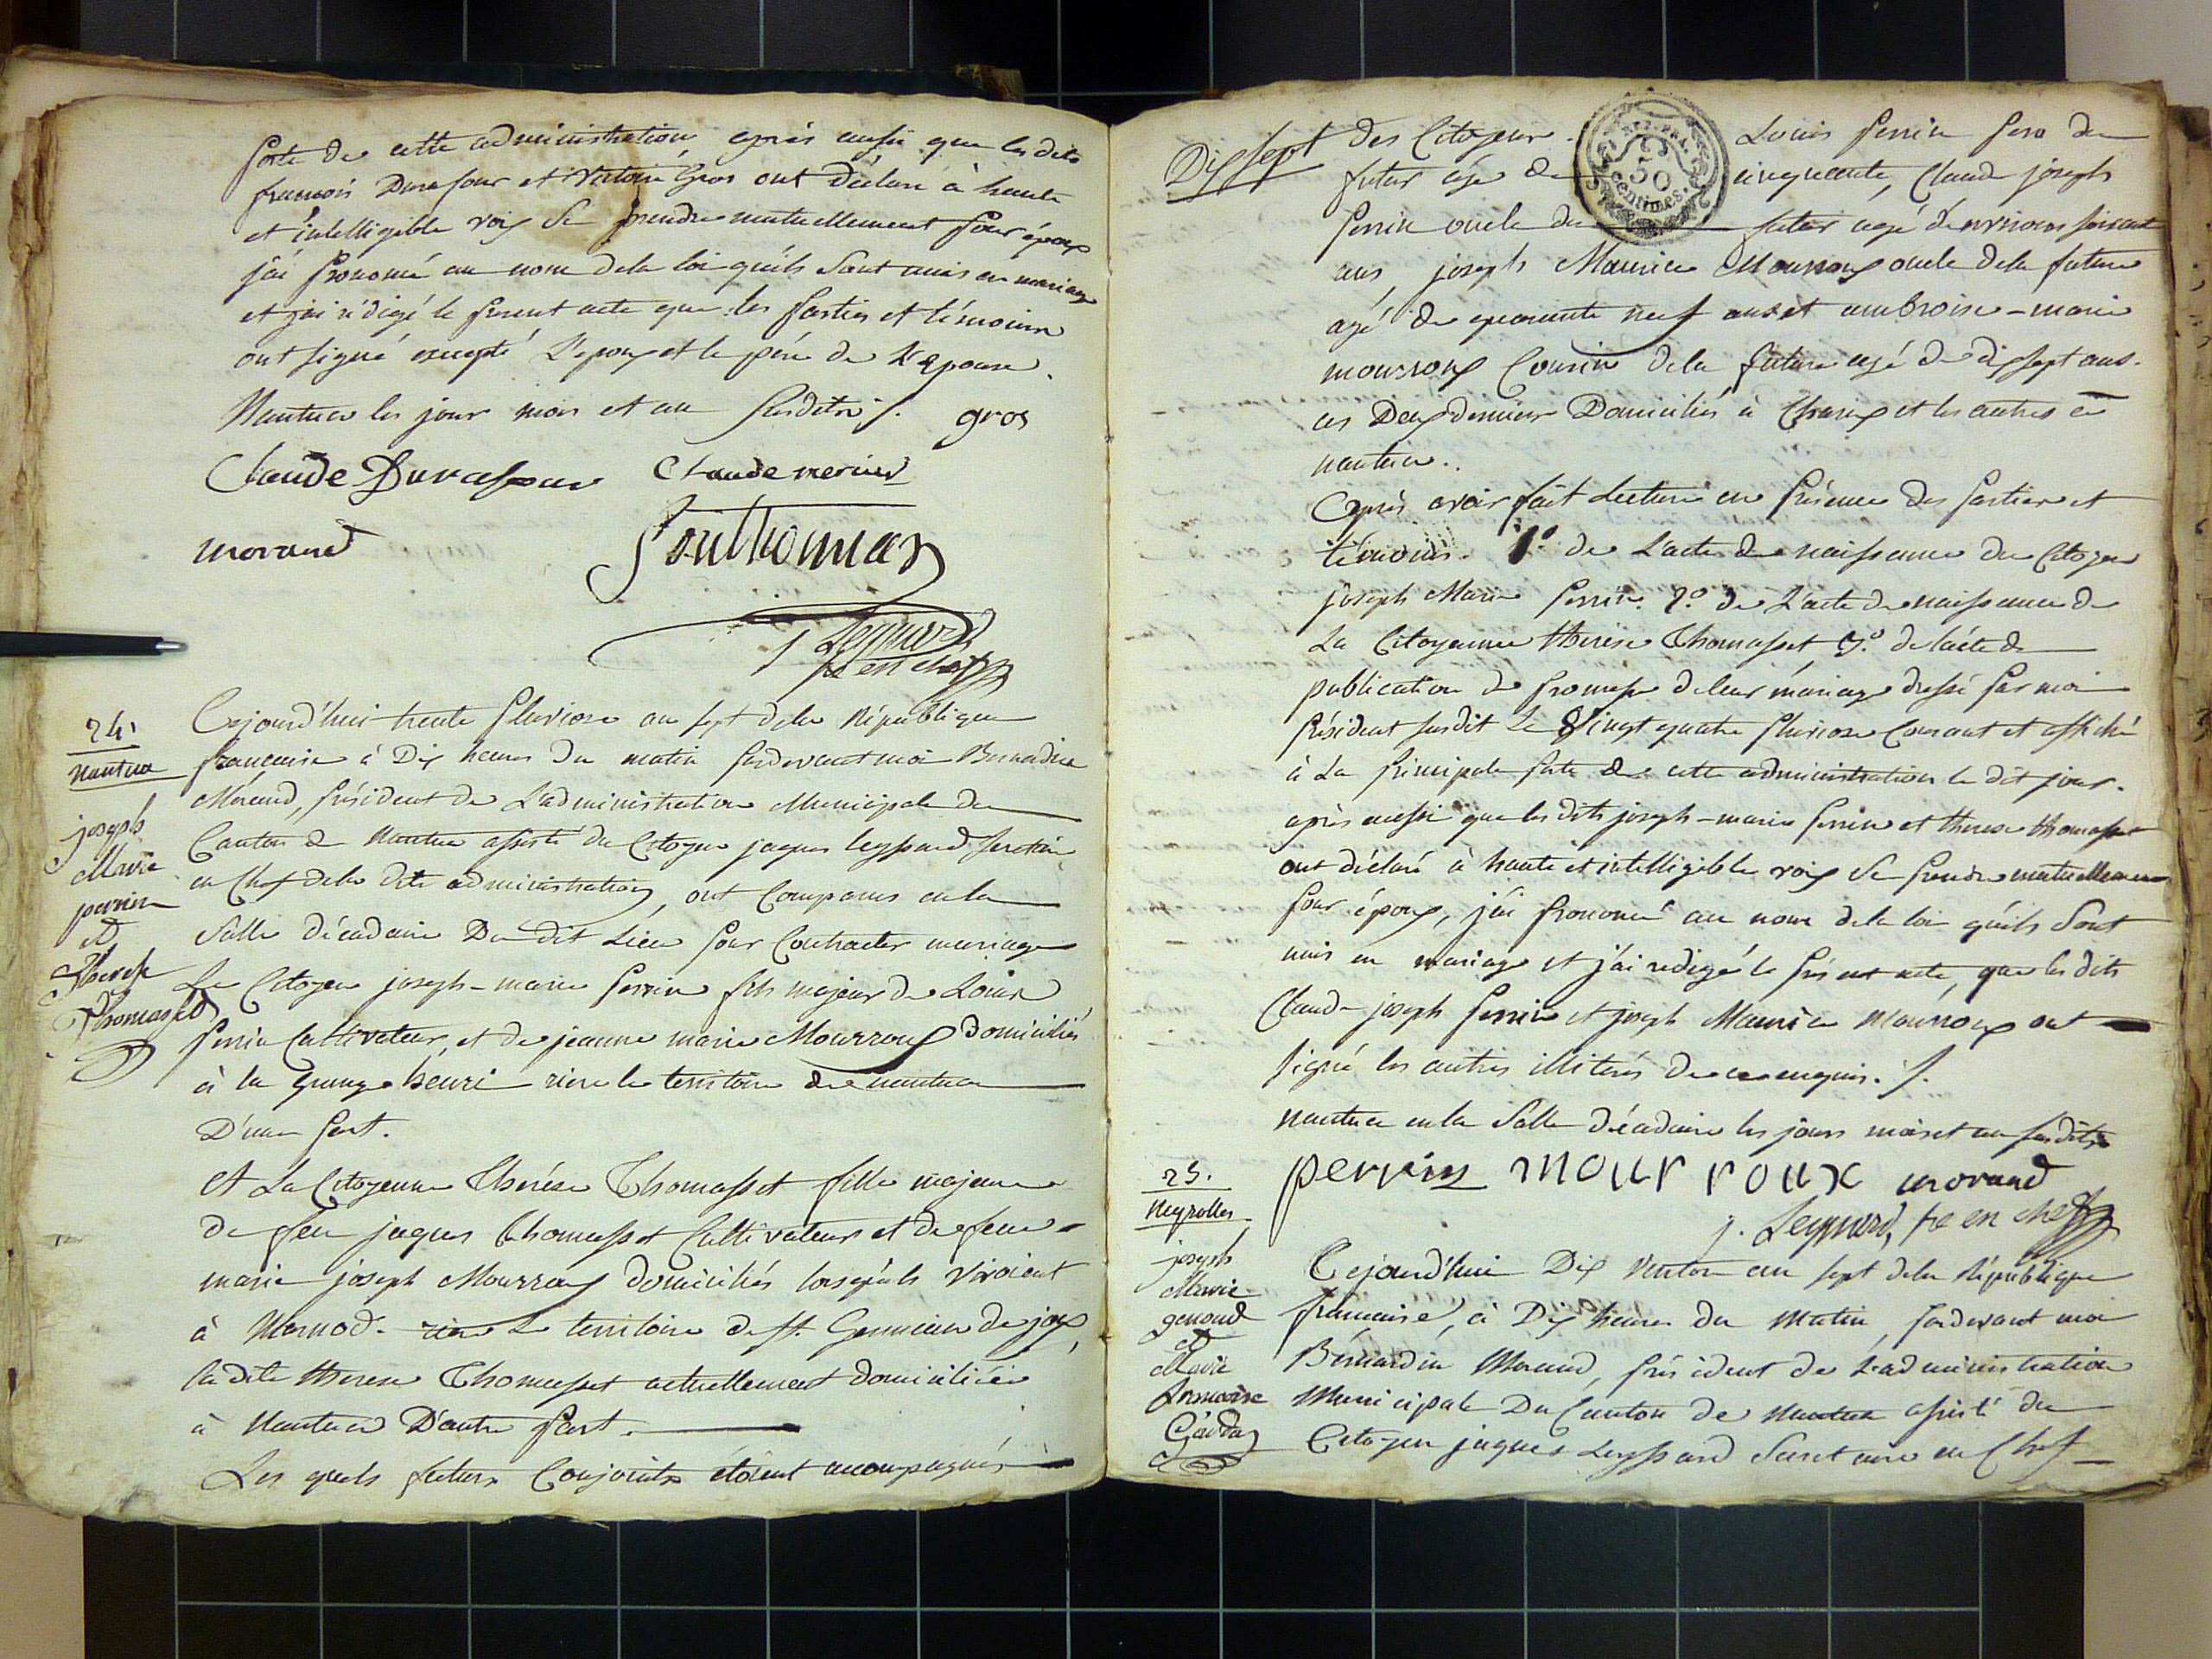 porte de cette administration, après aussi que les dits
françois Durafour et Victoire Gros ont déclaré à haute
et intelligible voix se prendre mutuellement pour époux
j'ai prononcé au nom de la loi qu'ils sont unis en mariage
et j'ai rédigé le present acte que les parties et témoins
ont signé excepté L'epoux et le père de L'epouse.
Nantua les jour mois et an susdits. gros
Claude Durafour Claude mercier
morand
j Leyssard
sre en chef
24.
Nantua
joseph
Marie
perrin
et
Therese
Thomasset
Cejourd'hui trente pluviose an sept de la République
francaise à Dix heures du matin pardevant moi Bernardin
Morand, président de L'administration Municipale du
Canton de Nantua assisté du Citoyen jaques leyssard secretaire
en Chef de la dite administration, ont Comparus en la
Salle décadaire Du dit Lieu pour Contracter mariage
Le Citoyen joseph-marie perrin fils majeur de Louis
perrin Cultivateur, et de jeanne marie Mourroux domiciliés
à la grange henri riere le territoire de nantua
D'une part.
Et La Citoyenne Thérèse Thomasset fille majeure
de feu jaques Thomasset Cultivateur et de feue
marie joseph Mourroux domiciliés lorsqu'ils vivoient
à Marnod riere Le territoire de St. Germain de joux,
la dite therese Thomasset actuellement domiciliée
à Nantua D'autre part.
Les quels futurs Conjoints étoient accompagnés
Dix sept
des Citoyens Louis perrin pere du
50
centimes.
futur agé de cinquante, Claude joseph
perrin oncle du futur agé d'environs soixante
ans, joseph Maurice Mourroux oncle de la future
agé de quarante neuf ans et ambroise-marie
mourroux Cousin de la future agé de dix sept ans.
ces Deux derniers Domiciliés à Charix et les autres à
nantua.
Après avoir fait Lecture en présence des parties et
témoins. 1o. de L'acte de naissance du Citoyen
joseph Marie perrin. 2o. de L'acte de naissance de
La Citoyenne therèse Thomasset 3o. de l'acte de
publication de promesse de leur mariage dressé par moi
président susdit Le Vingt quatre pluviose Courant et affiché
à La principale porte de cette administration le dit jour.
après aussi que les dits joseph-marie perrin et therese thomasset
ont déclaré à haute et intelligible voix se prendre mutuellement
pour époux, j'ai prononcé au nom de la loi qu'ils sont
unis en mariage et j'ai redigé le présent acte, que les dits
Claude joseph perrin et joseph Maurice Mourroux ont
signé les autres illiterés de ce enquis.
nantua en la Salle décadaire les jours mois et an susdits
perrin mour roux morand
j. Leyssard, sre en chef
25.
Neyrolles
joseph
Marie
genoud
et
Marie
Cejourd'hui Dix Ventose an sept de la République
francaise, à Dix heures du Matin, pardevant moi
Bernardin Morand, président de L'administration
Municipale Du Canton de Nantua assisté du
Citoyen jaques Leyssard Secretaire en Chef